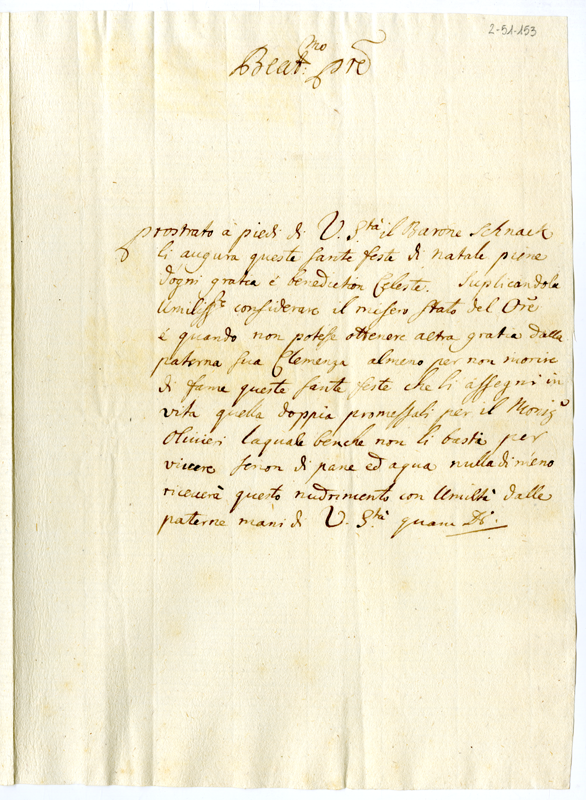 2-51-153
Beat.mo Pre
Prostrato à piedi di V. Stà il Barone Schnack
li augura queste sante feste di natale piene
dogni gratia é benediction Celeste. Suplicandola
Umiliss.te considerare il misero stato del Ore
é quando non potese ottenere altra gratia dalla
paterna sua Clemenza almeno per non morire
di fame queste sante feste che li assegni in
vita quella doppia promessali per il Monsig.r
Olivieri laquale benche non li basta per
vivere senon di pane ed aqua nulladimeno
riceverà questo nudrimento con Umiltà dalle
paterne mani di V. Stà quam Ds.